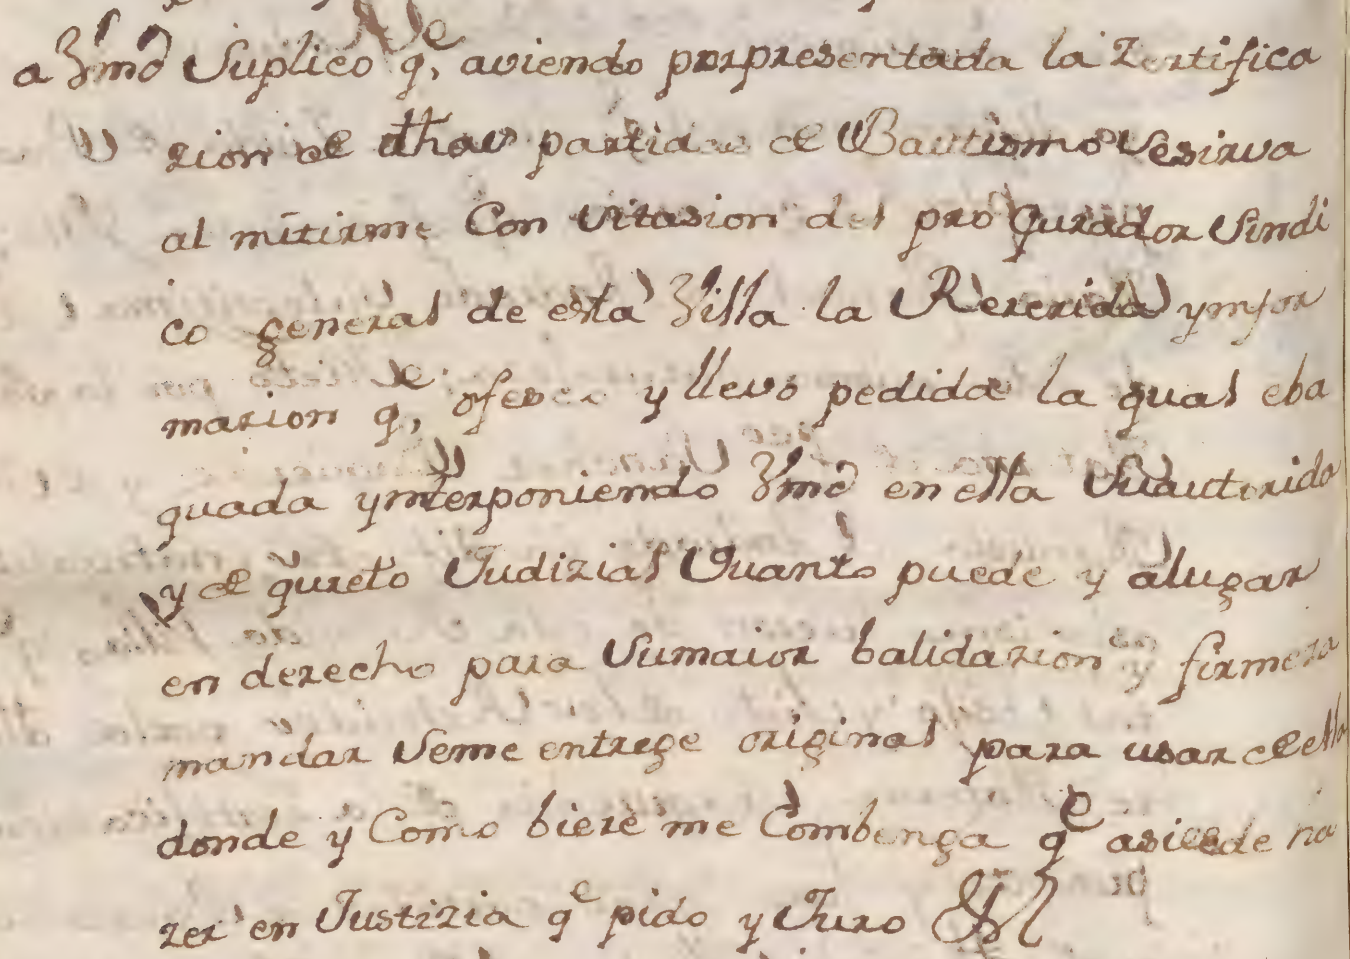 a Vmd Suplico q.e aviendo porpresentada la Zertifica
zion de dhas partidas de Bautismo Sesirva
al mitirme Con zitasion del pro Qurador Sindi
co general de esta Villa la Rererida ymfor
mazion q.e ofesco y llevo pedida la qual eba
quada ymterponiendo Vmd en ella Suautorida
y de qureto Judizial Quanto puede y alugar
en derecho para Sumaior balidazion y firmeza
mandar Seme entrege original para usar de ella
donde y Como biere me Combenga q.e asiesde ha
zer en Justizia q.e pido y Juro